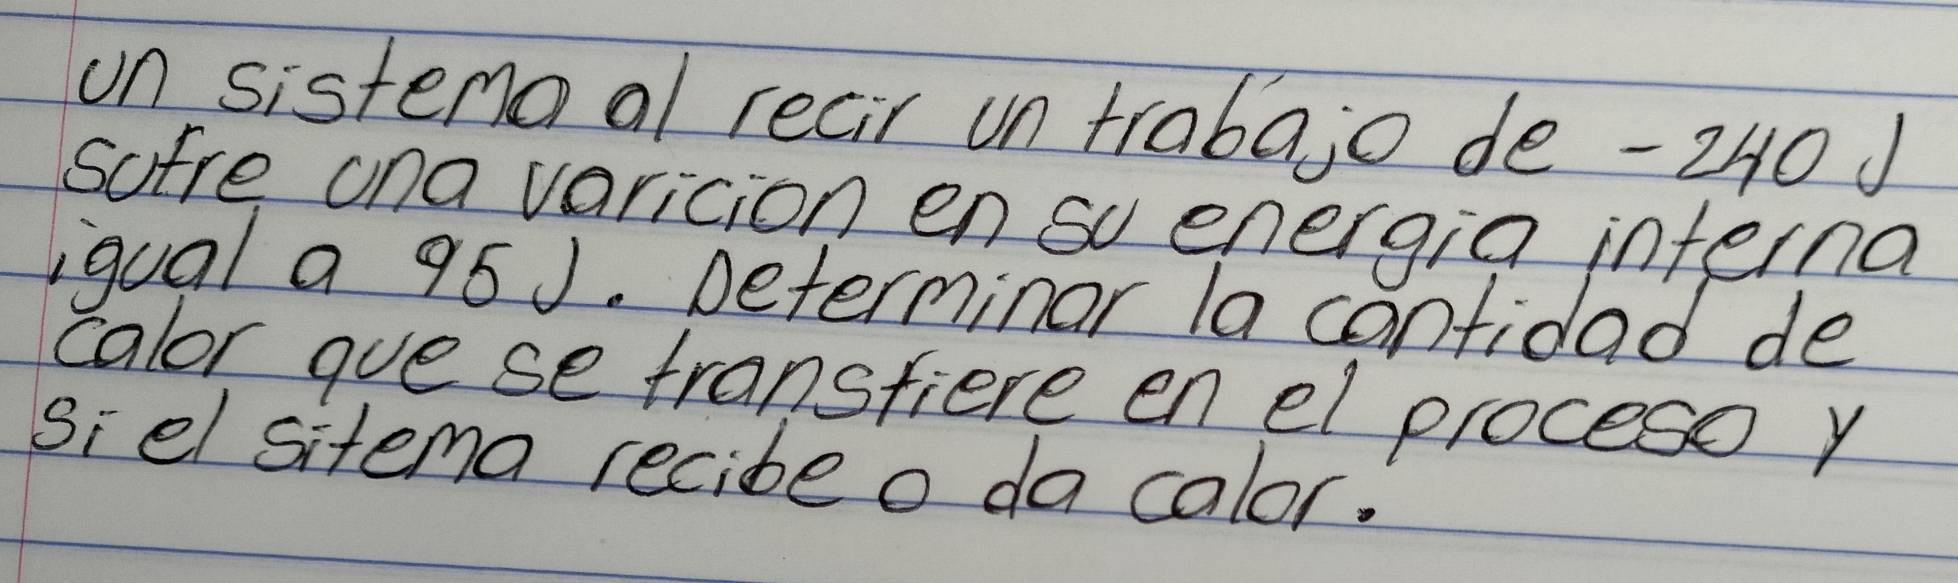 un sistema al recir un trabajo de -240 J
sufre una varicion en su energia interna
igual a 95 J. Determinar la cantidad de
calor que se transfiere en el proceso y
si el sitema recibe o da calor.